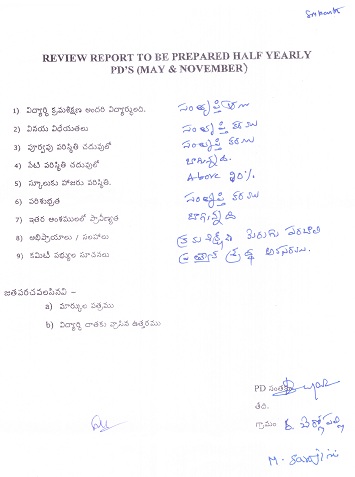 Srikanth
REVIEW REPORT TO BE PREPARED HALF YEARLY
PD'S (MAY & NOVEMBER)
1) విద్యార్థి క్రమశిక్షణ అందరి విద్యార్థులది. సంతృప్తికరము
2) వినయ విధేయతలు సంతృప్తి కరము
3) పూర్వపు పరిస్థితి చదువులో సంతృప్తి కరము
4) నేటి పరిస్థితి చదువులో బాగున్నది.
5) స్కూలుకు హాజరు పరిస్థితి. Above 90%
6) పరిశుభ్రత సంతృప్తి కరము
7) ఇతర అంశములలో ప్రావీణ్యత బాగున్నది
8) అభిప్రాయాలు / సలహాలు మెరుగు పరచాలి
9) కమిటి సభ్యుల సూచనలు శ్రద్ధ అవసరము.
జతపరచవలసినవి :-
a) మార్కుల పత్రము
b) విద్యార్థి దాతకు వ్రాసిన ఉత్తరము
PD సంతకం
తేది.
గ్రామం
M. Sarojini